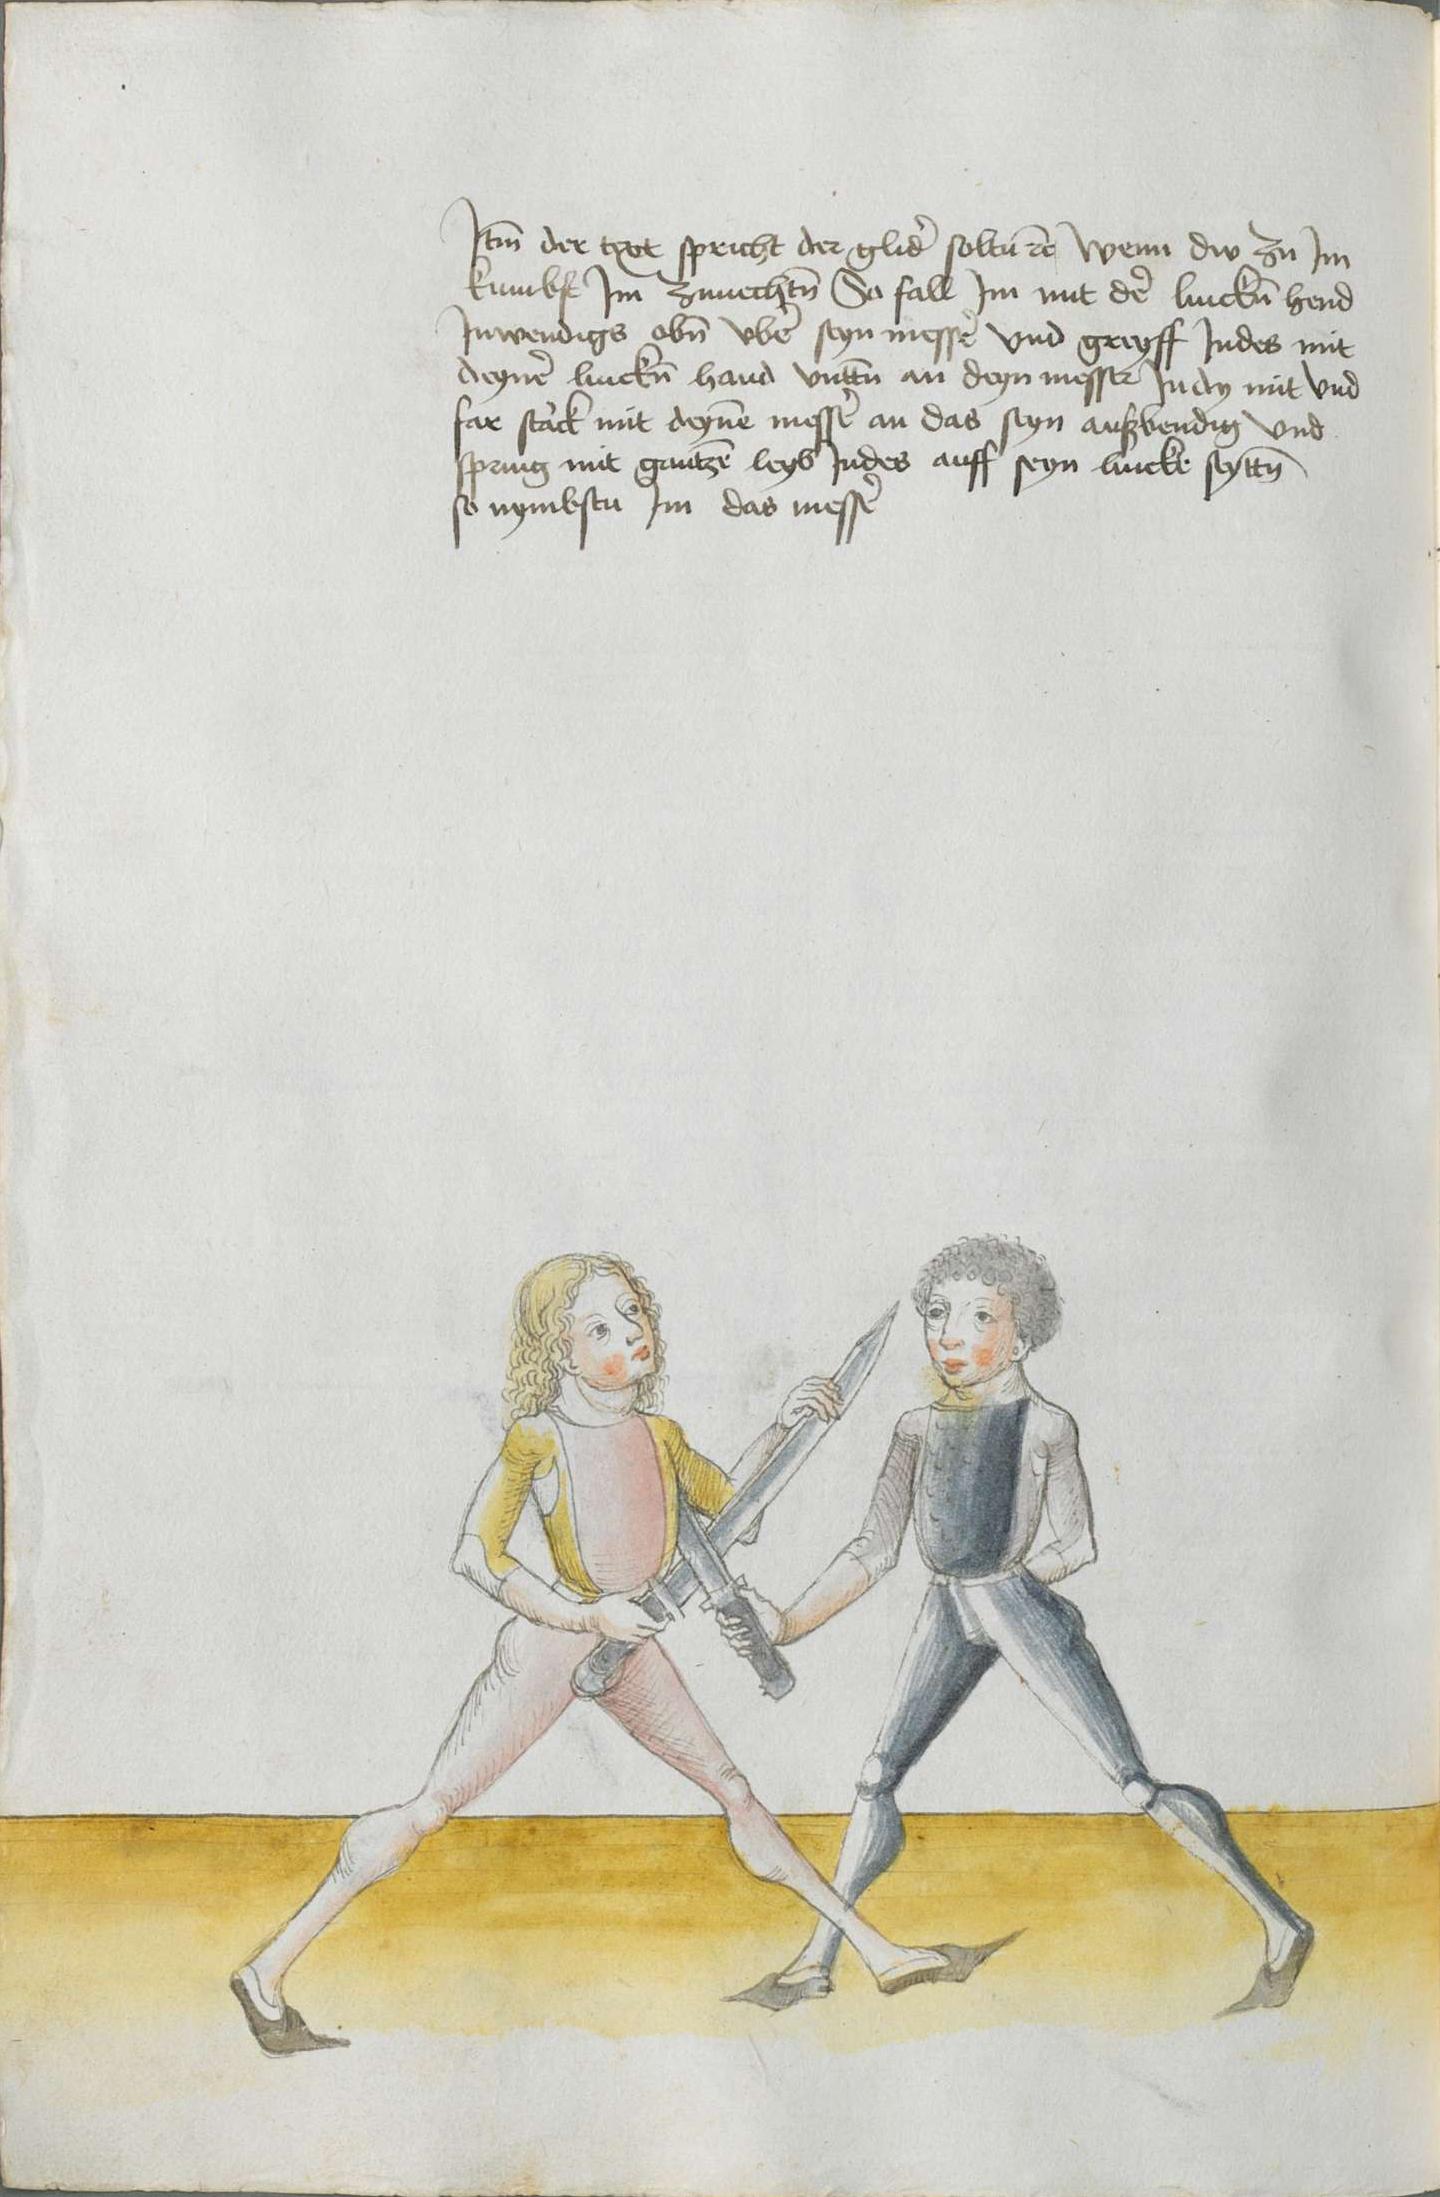 Itm̄ der text spricht der glid̄ soltu rē Wenn dw zu Im
kumbst Im zuuechtn̄ So fall Im mit dē linckn̄ hend
Inwendigs obn̄ vbē seyn messē vnd greyff Indes mit
deynē linckn̄ hand vnttn̄ an deyn messer In dy mit vnd
far starck mit deynē messē an das seyn auswendig vnd
spring mit gantzē leyb Indes auff seyn lincke seyttn̄
so nymbstu Im das messē